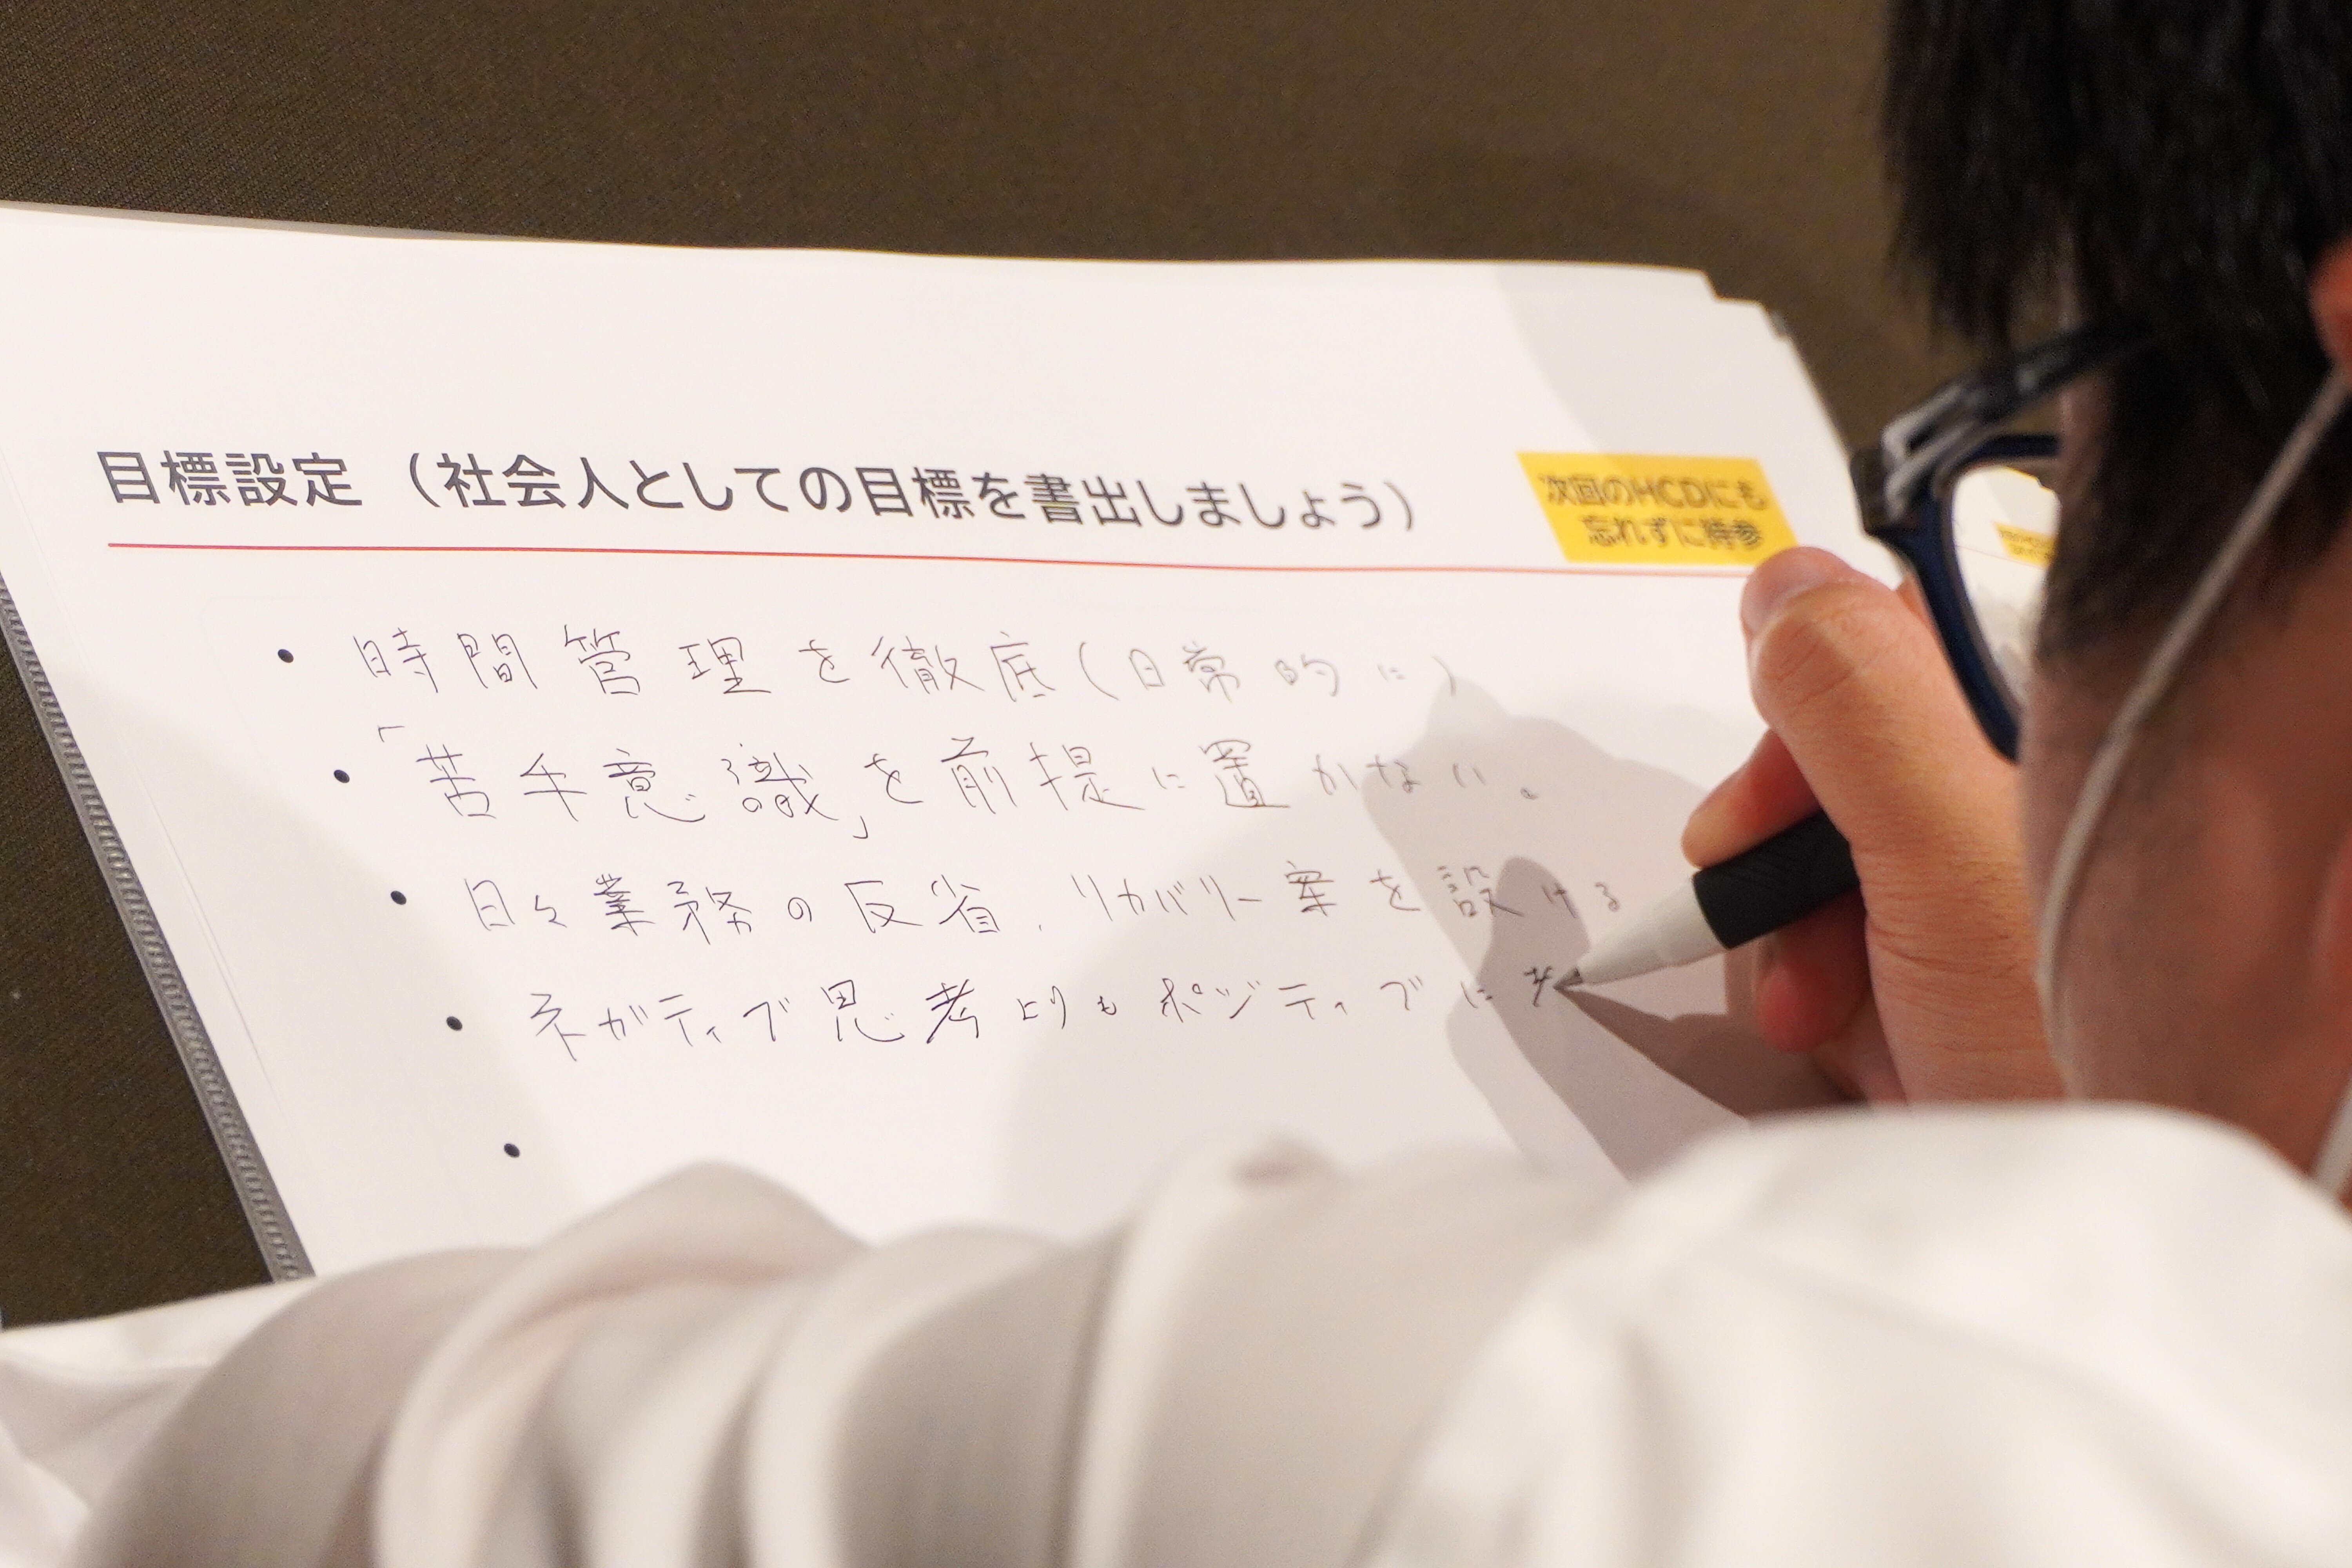 目標設定（社会人としての目標を書出しましょう）
次回のHCDにも
忘れずに持参
・時間管理を徹底(日常的に)
・「苦手意識」を前提に置かない。
・日々業務の反省、リカバリー案を設ける
・ネガティブ思考よりもポジティブに考
・